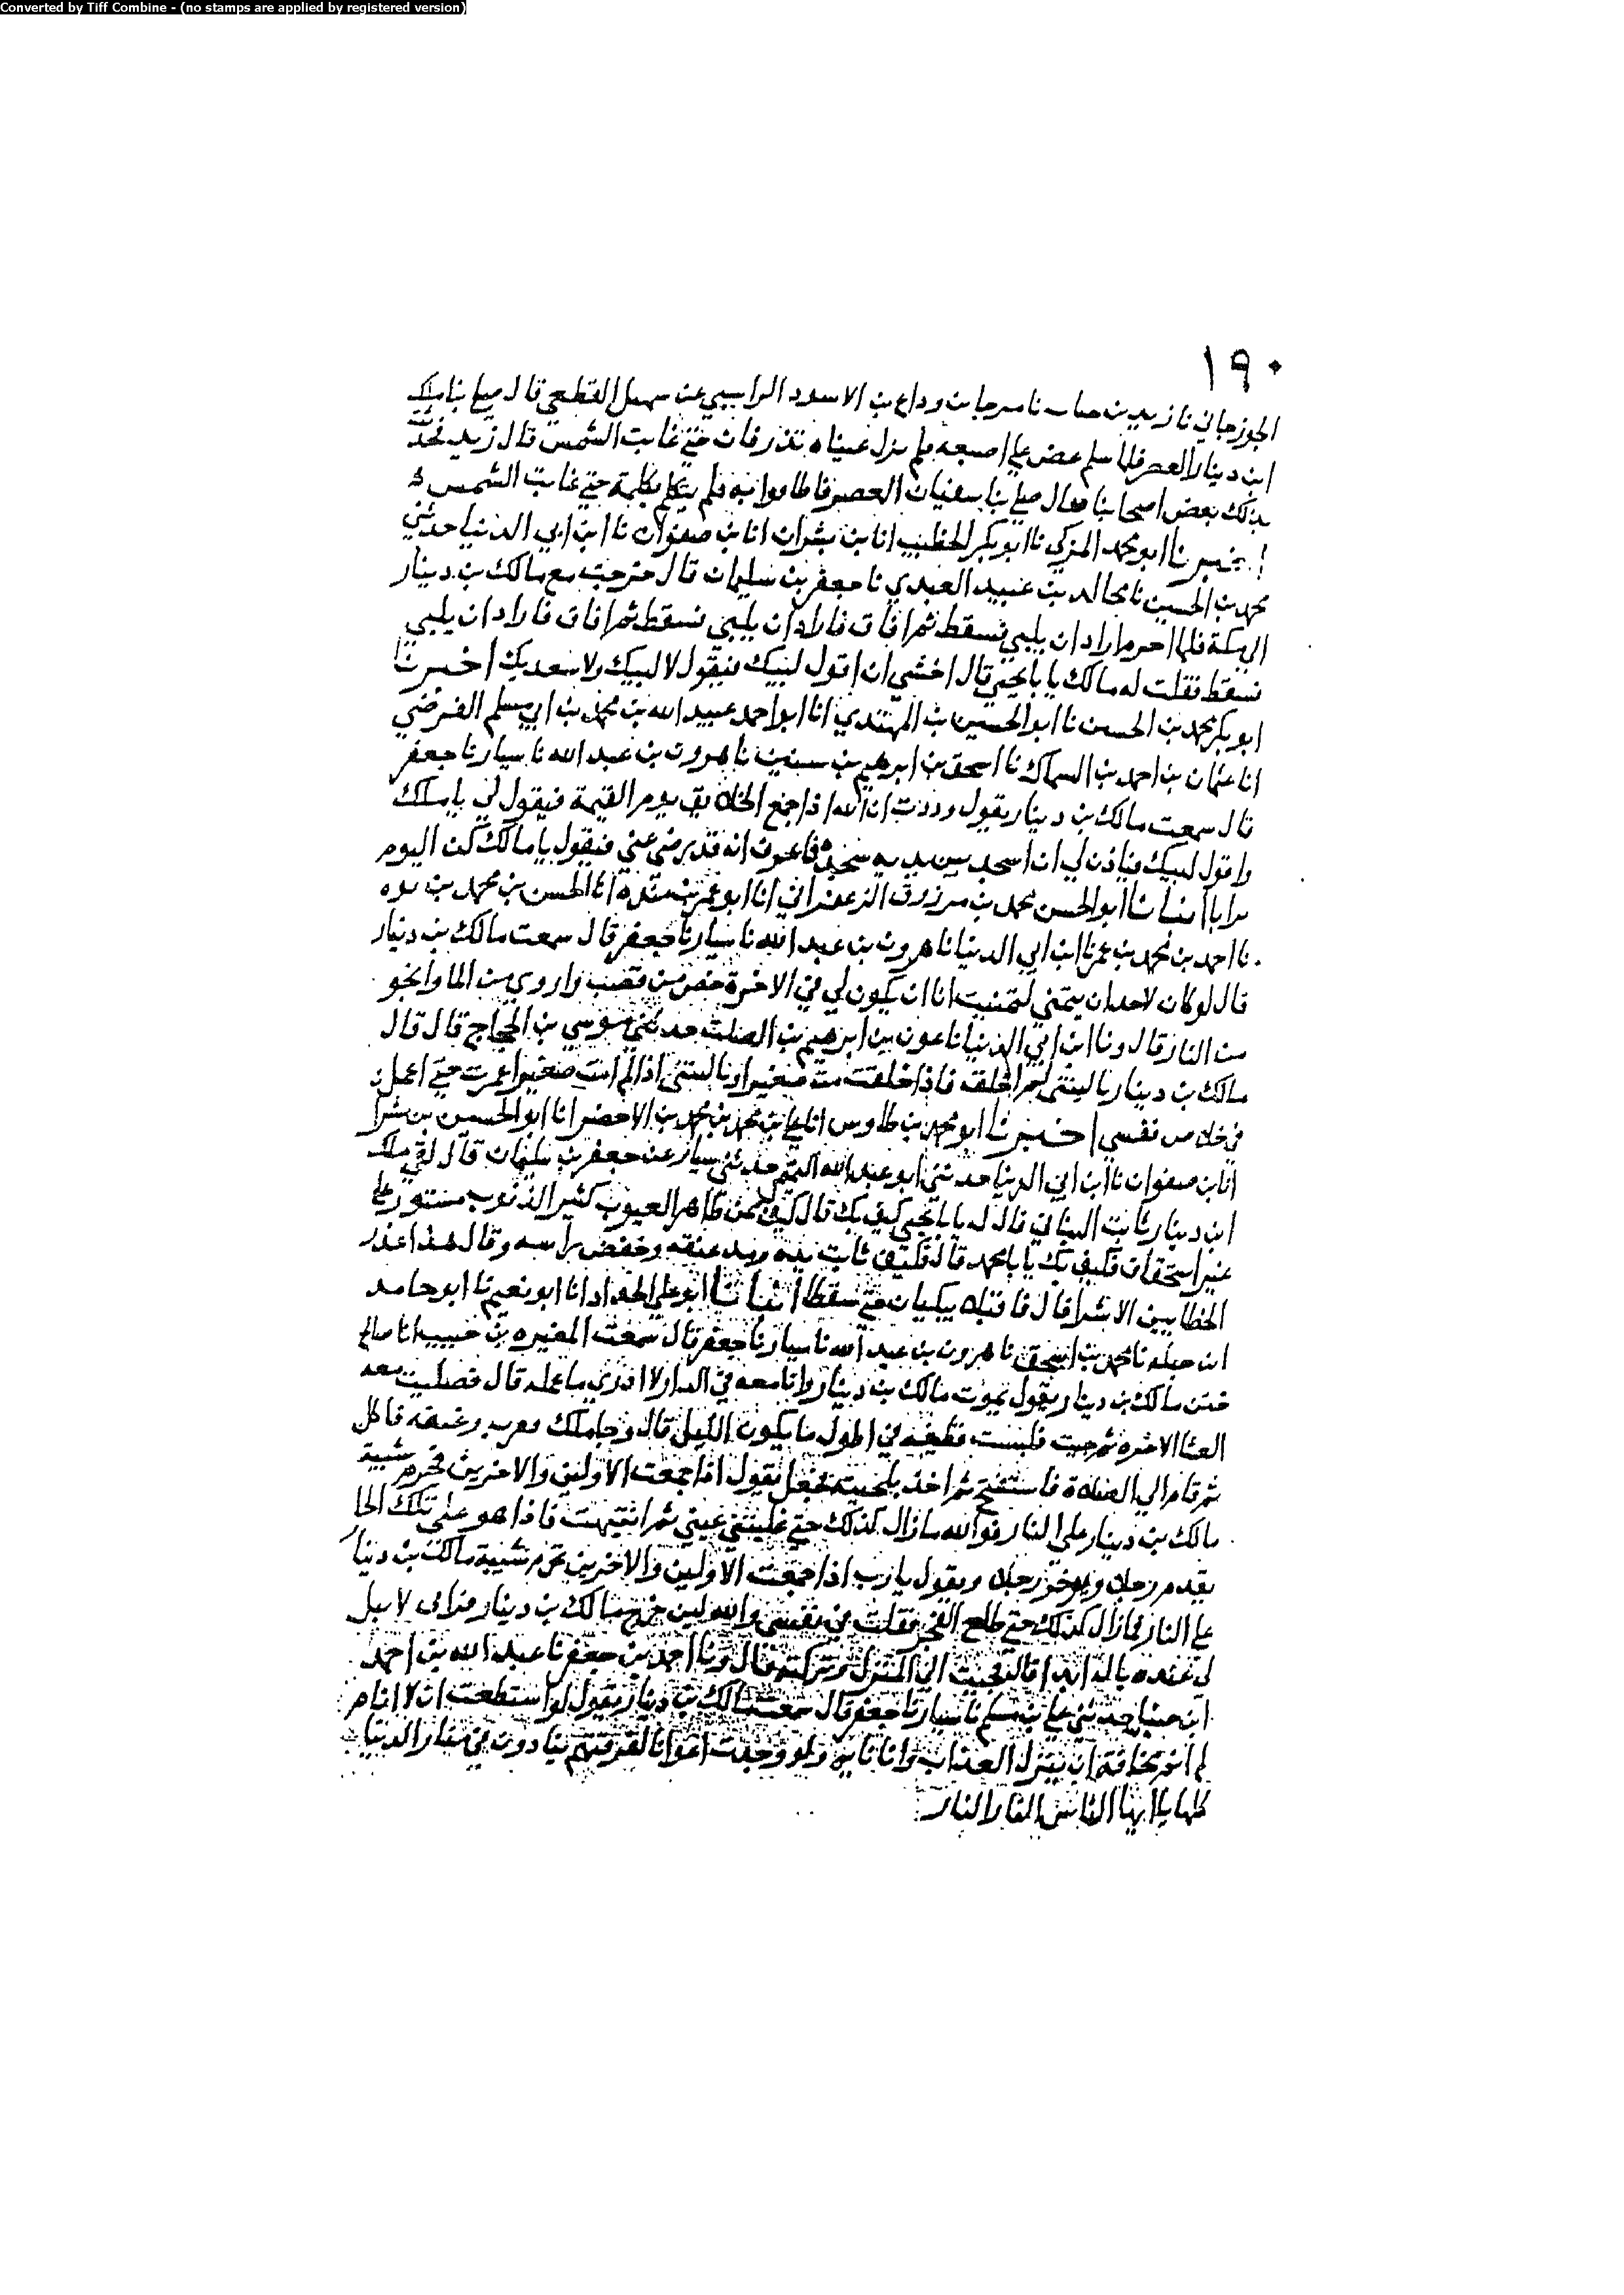 Converted by Tiff Combine - (no stamps are applied by registered version)
١٩٠
الجوزجاني نا زيد بن نا مرجا بن وداع بن الاسود الراسبي عن سهيل القطعي قال صلى بنا ملك
ابن دينار العصر فلما سلم عض على اصبعه فلم تزل عيناه تذرفان حتى غابت الشمس قال زيد فحدثت
بذلك بعض اصحابنا فقال صلى بنا سفيان العصر فلم يتكلم بكلمة حتى غابت الشمس
اخبرنا ابو محمد المزكي نا ابو بكر الخطيب انا بن بشران انا بن صفوان نا ابن ابي الدنيا حدثني
محمد بن الحسين نا خالد بن عبيد العبدي نا جعفر بن سليمان قال خرجت مع مالك بن دينار
الى مكة فلما احرم اراد ان يلبي فسقط ثم افاق فاراد ان يلبي فسقط ثم افاق فاراد ان يلبي
فسقط فقلت له مالك يا با يحيى قال اخشى ان اقول لبيك فيقول لا لبيك ولا سعديك اخبرنا
ابو بكر محمد بن الحسين نا ابو الحسين بن المهتدي انا ابو احمد عبيد الله بن محمد بن ابي مسلم الفرضي
انا عثمان بن احمد بن السماك نا اسحق بن ابرهيم بن سنين نا هرون بن عبد الله نا سيار نا جعفر
قال سمعت مالك بن دينار يقول وددت ان الله اذا جمع الخلائق يوم القيمة فيقول لي يا ملك
واقول لبيك فياذن لي ان اسجد بين يديه سجدة فاعرف انه قد رضي عني فيقول يا مالك كن اليوم
ترابا انبانا ابو الحسن محمد بن مرزوق الزعفراني انا ابو عمر بن منده انا الحسن بن محمد بن يوه
نا احمد بن محمد بن عمر نا ابن ابي الدنيا نا هرون بن عبد الله نا سيار نا جعفر قال سمعت مالك بن دينار
قال لو كان لاحد ان يتمنى لتمنيت انا ان يكون لي في الاخرة خص من قصب واروى من الما وانجو
من النار قال ونا ابن ابي الدنيا نا عون بن ابرهيم بن الصلت حدثني موسى بن الحجاج قال قال
مالك بن دينار يا ليتني لم اخلق فاذا خلقت مت صغيرا ويا ليتني اذ لم امت صغيرا عمرت حتى اعمل
في خلاص نفسي اخبرنا ابو محمد بن طاوس انا علي بن محمد بن محمد بن الاخضر انا ابو الحسين بن بشران
انا بن صفوان نا ابن ابي الدنيا حدثني ابو عبد الله التيمي حدثني سيار عن جعفر بن سليمان قال لقي ملك
ابن دينار ثابت البناني فقال له يا با يحيى كيف بك قال كيف بمن ظاهر العيوب كثير الذنوب مستور على
غير استحقاق فكيف بك يا با محمد قال فكتف ثابت يديه ومد عنقه وخفض راسه وقال هذا عذر
الخطايين الاشرا قال فاقبلا يبكيان حتى سقطا انبانا ابو علي الحداد انا ابو نعيم نا ابو حامد
ابن جبله نا محمد بن اسحق نا هرون بن عبد الله نا سيار نا جعفر قال سمعت المغيره بن حبيب انا صالح
ختن مالك بن دينار يقول يموت مالك بن دينار وانا معه في الدار ولا ادري ما عمله قال فصليت معه
العشا الاخره ثم جيت فلبست قطيفه في اطول ما يكون الليل قال وجا ملك فقرب رغيفه فاكل
ثم قام الى الصلاة فاستفتح ثم اخذ بلحيته فجعل يقول اذا جمعت الاولين والاخرين فحرم شيبة
مالك بن دينار على النار فوالله ما زال كذلك حتى غلبتني عيني ثم انتبهت فاذا هو على تلك الحال
يقدم رجلا ويؤخر رجلا ويقول يا رب اذا جمعت الاولين والاخرين فحرم شيبة مالك بن دينار
على النار فما زال كذلك حتى طلع الفجر فقلت في نفسي والله لين خرج مالك بن دينار فراني لا يبل
لي عنده بالة ابدا قال فجيت الى المنزل وتركته قال ونا احمد بن جعفر نا عبد الله بن احمد
ابن حنبل حدثني علي بن مسلم نا سيار نا جعفر قال سمعت مالك بن دينار يقول لو استطعت ان لا انام
لم انم مخافة ان ينزل العذاب وانا نايم ولو وجدت اعوانا لفرقتهم ينادون في منار الدنيا
كلها يا ايها الناس النار النار